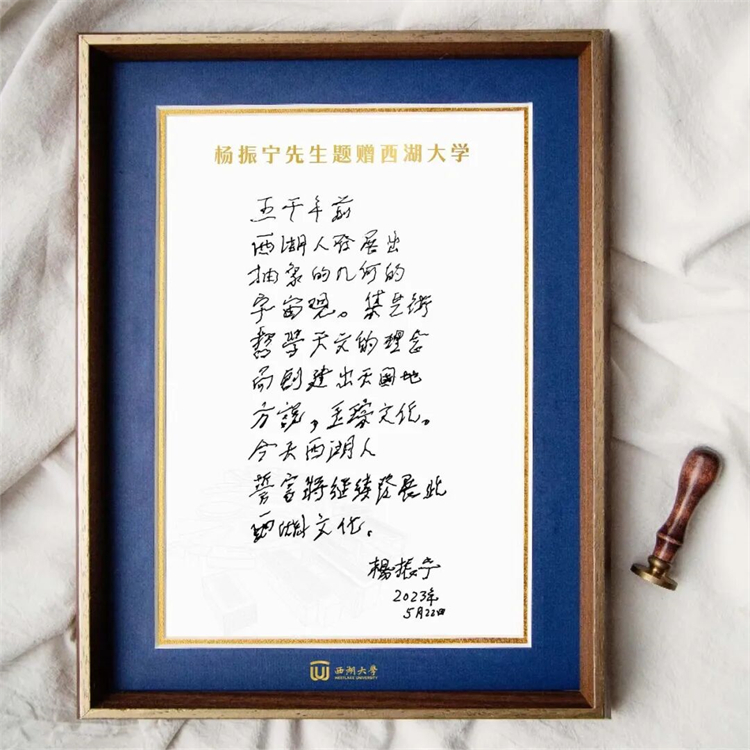 杨振宁先生题赠西湖大学
五千年前
西湖人發展出
抽象的几何的
宇宙观。集艺術
哲學天文的理念
而創建出天圆地
方說，玉琮文化。
今天西湖人
誓言將继续發展此
西湖文化。
楊振宁
2023年
5月22日
西湖大學
WESTLAKE UNIVERSITY